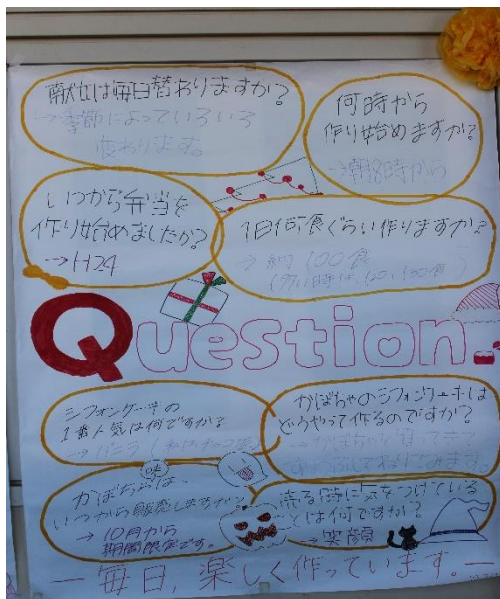 献立は毎日替わりますか?
→季節によっていろいろ
変わります。
何時から
作り始めますか?
→朝8時から
いつから弁当を
作り始めましたか?
→H24
1日何食ぐらい作りますか?
→約100食
Question
シフォンケーキの
1番人気は何ですか?
→バニラ
かぼちゃのシフォンケーキは
どうやって作るのですか?
かぼちゃは、
いつから販売しますか?
→10月から
期間限定です。
売る時に気をつけている
ことは何ですか?
→笑顔
ー毎日,楽しく作っています。ー